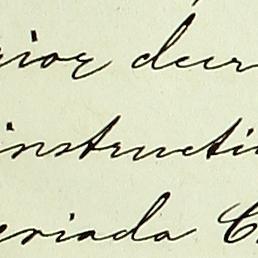 rior dur
instructi
eriada C